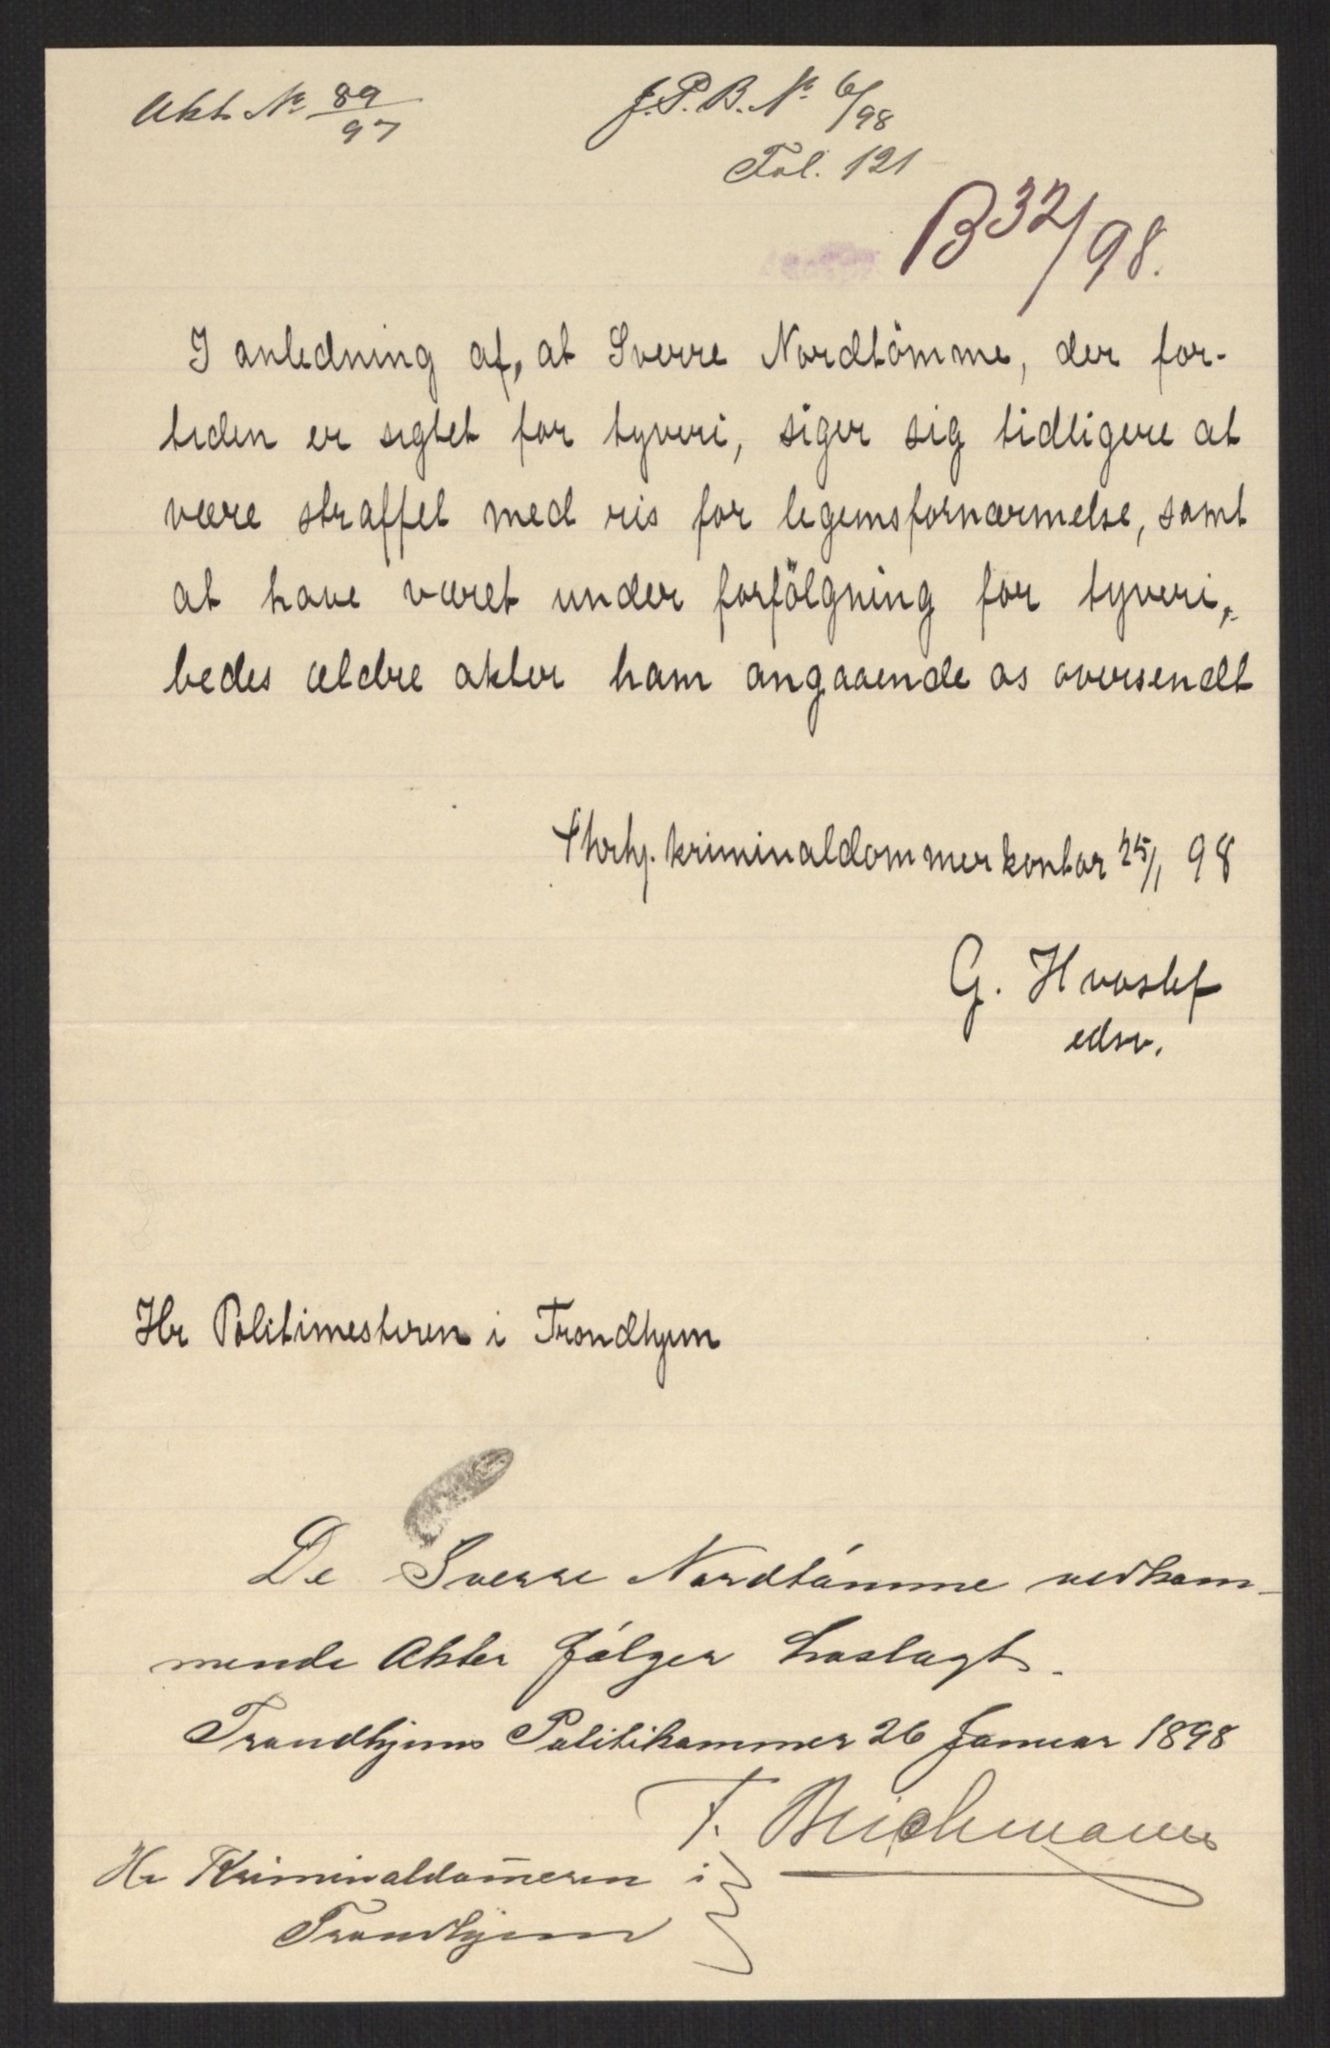 Akt No 89/97
J.P.B. No 6/98
Fol. 121
B 32/98.
I anledning af, at Sverre Nordtömme, der for-
tiden er sigtet for tyveri, siger sig tidligere at
være straffet med ris for legemsfornærmelse, samt
at have været under forfölgning for tyveri,
bedes ældre akter ham angaaende os oversendt
Thrhj. kriminaldommerkontor 25/1 98
G. Hvoslef
edsv.
Hr Politimesteren i Trondhjem
De Sverre Nordtömme vedkom-
mende Akter fölger hoslagt.
Trondhjems Politikammer 26 Januar 1898
T. Beichmann
Hr Kriminaldom̄eren i
Trondhjem